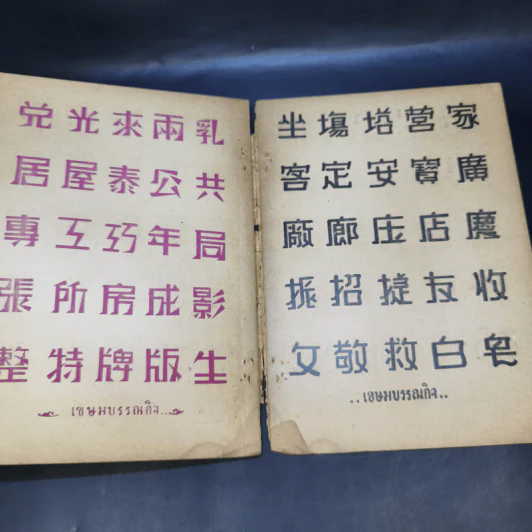 兌光來兩乳
居屋泰公共
專工巧年局
張所房成影
整特牌版生
เขษมบรรณกิจ
坐塲塔营家
客定安寶廣
廠廊庄店慶
振招捷友收
文敬救白皂
..เขษมบรรณกิจ..